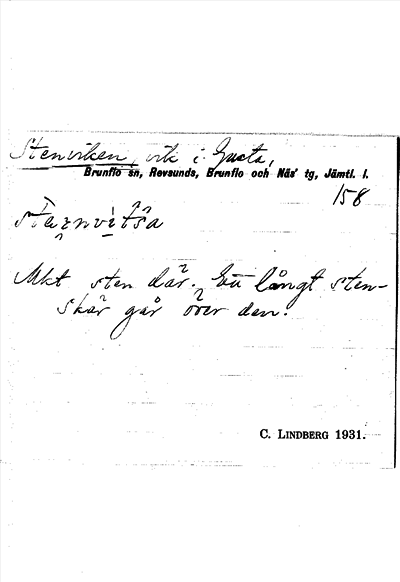 Stenviken, vik i Gusta,
Brunflo sn, Revsunds, Brunflo och Näs' tg, Jämtl. l.
158
staznvitsa
Mkt sten där. Ett långt sten-
skär går över den.
C. LINDBERG 1931.